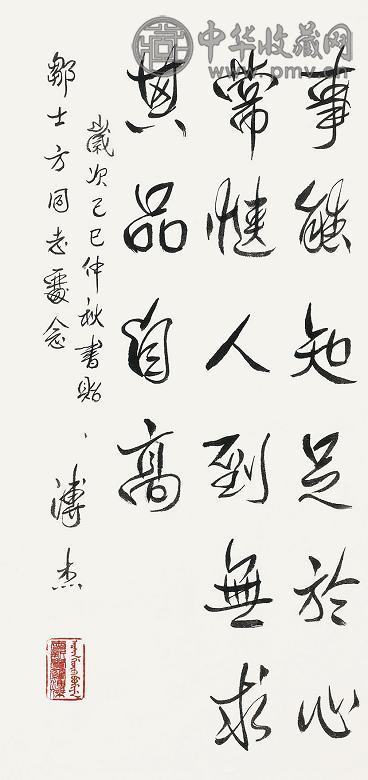 中华收藏网
www.pmv.cn
事能知足於心
常愜人到無求
其品自高
歲次己巳仲秋書貽
鄒士方同志念
溥杰